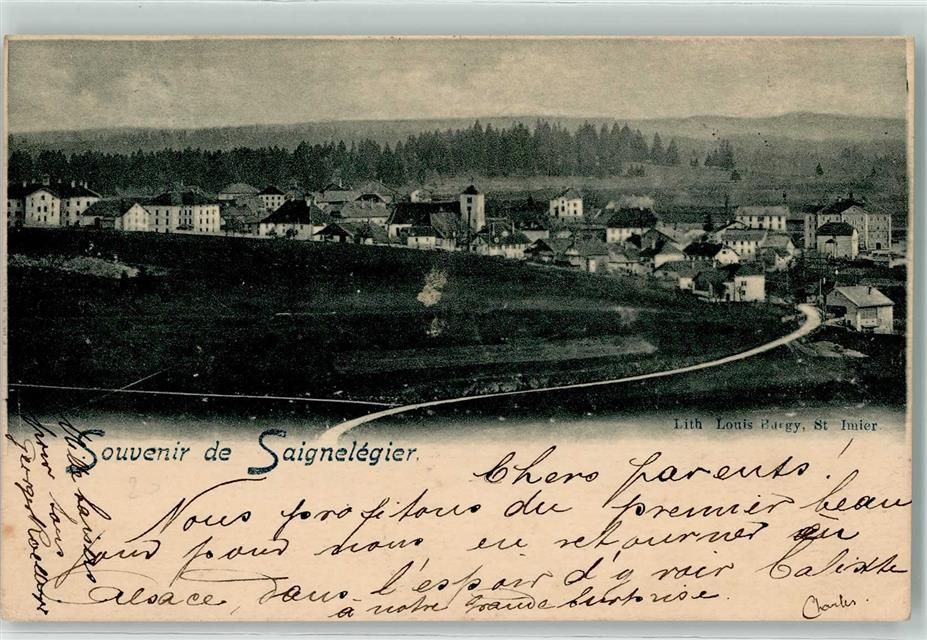 Lith Louis Burgy, St Imier.
Souvenir de Saignelégier.
Chers parents!
Nous profitons du premier beau
jour pour nous en retourner en
Alsace, dans l'espoir d'y voir Calixte
à notre grande surprise.
Charles.
Mille baisers
pour tous
Georges